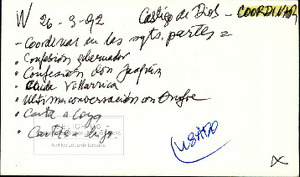 W 26-3-92 Castigo de Dios - COORDINAR
- Coordinar en las sgts. partes =
• Confesión gobernador
• Confesión don Joaquín
• Caída Villarrica
• Ultima conversación con Onofre
• Carta a Goyo
• Carta a hijo.
USADO